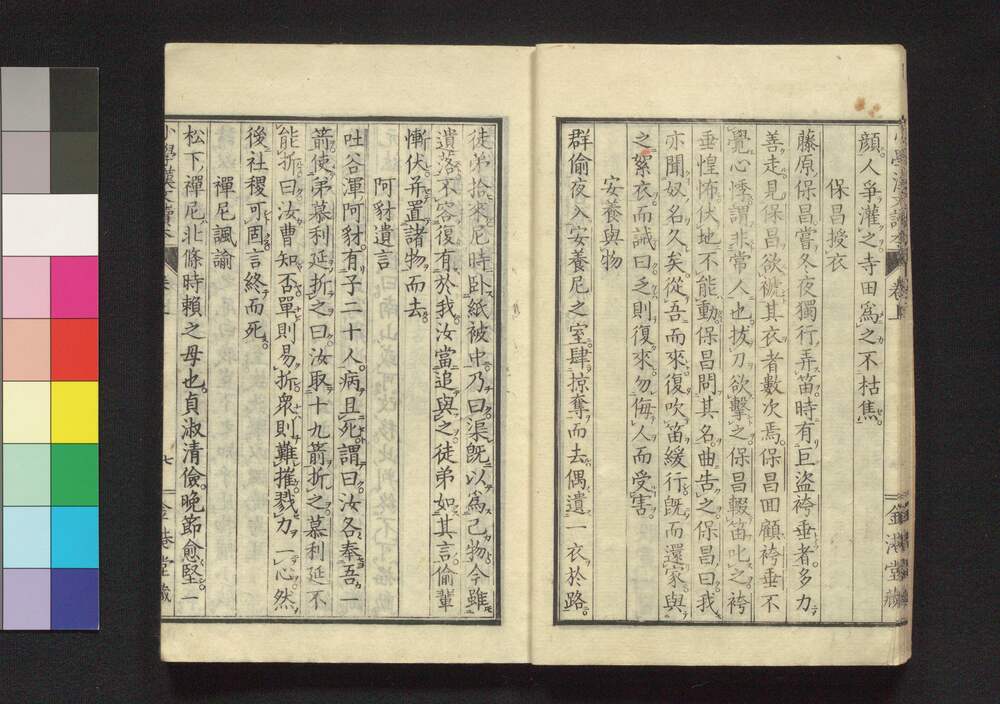 顔人爭灌之寺田爲之不枯焦
保昌授衣
藤原保昌嘗冬夜獨行弄笛時有巨盜袴垂者多力
善走見保昌欲褫其衣者數次焉保昌回顧袴垂不
覺心悸謂非常人也拔刀欲擊之保昌輟笛叱之袴
垂惶怖伏地不能動保昌問其名曲告之保昌曰我
亦聞奴名久矣從吾而來復吹笛緩行既而還家與
之絮衣而誡曰乏則復來勿侮人而受害
安養與物
群偷夜入安養尼之室肆掠奪而去偶遺一衣於路
徒弟拾來尼時臥紙被中乃曰渠既以爲己物今雖
遺落不容復有於我汝當追與之徒弟如其言偷輩
慚伏并置諸物而去
阿豺遺言
吐谷渾阿豺有子二十人病且死謂曰汝各奉吾一
箭使弟慕利延折之曰汝取十九箭折之慕利延不
能折曰汝曹知否單則易折衆則難摧戮力一心然
後社稷可固言終而死
禪尼諷諭
松下禪尼北條時賴之母也貞淑清儉晚節愈堅一
小學漢文讀本 卷上 七 金港堂藏